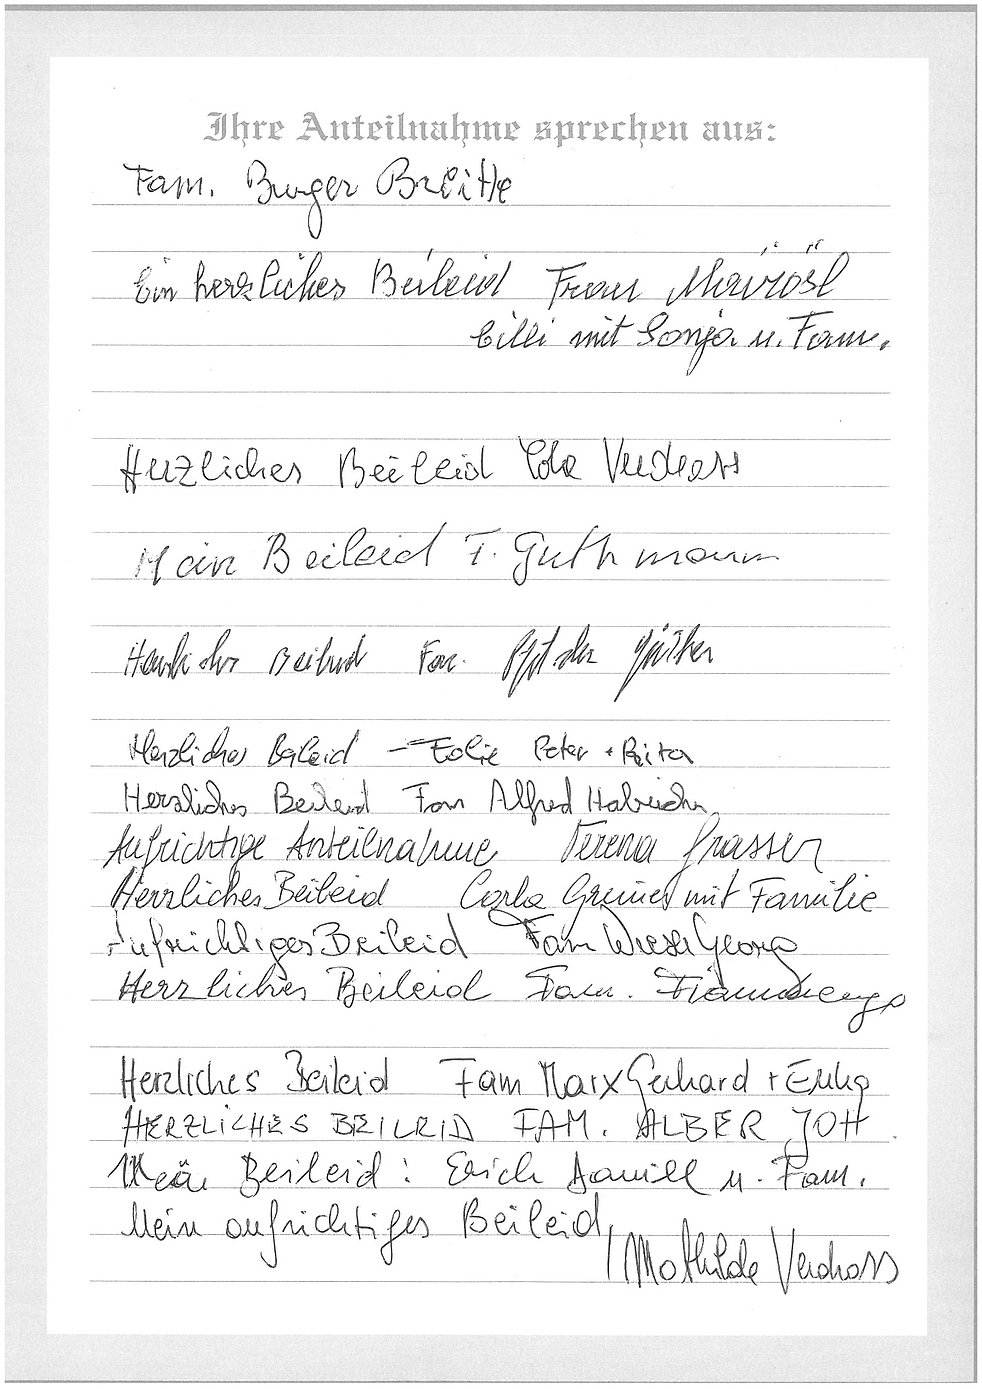 Ihre Anteilnahme sprechen aus:
Fam. Burger Britte
Ein herzliches Beileid Frau Mairösl
Cilli mit Sonja u. Fam.
Herzliches Beileid Verdross
Mein Beileid F. Guthmann
Herzliches Beileid Fam. Günther
Herzliches Beileid Folie Peter + Reita
Herzliches Beileid Fam Alfred Habicher
Aufrichtige Anteilnahme Verena Grasser
Herzliches Beileid Carla Gruner mit Familie
Aufrichtiges Beileid Fam Wieser Georg
Herzliches Beileid Fam.
Herzliches Beileid Fam Marx Gerhard + Erika
HERZLICHES BEILEID FAM. ALBER JOH
Mein Beileid: Erich u. Fam.
Mein aufrichtiges Beileid,
Mathilde Verdross